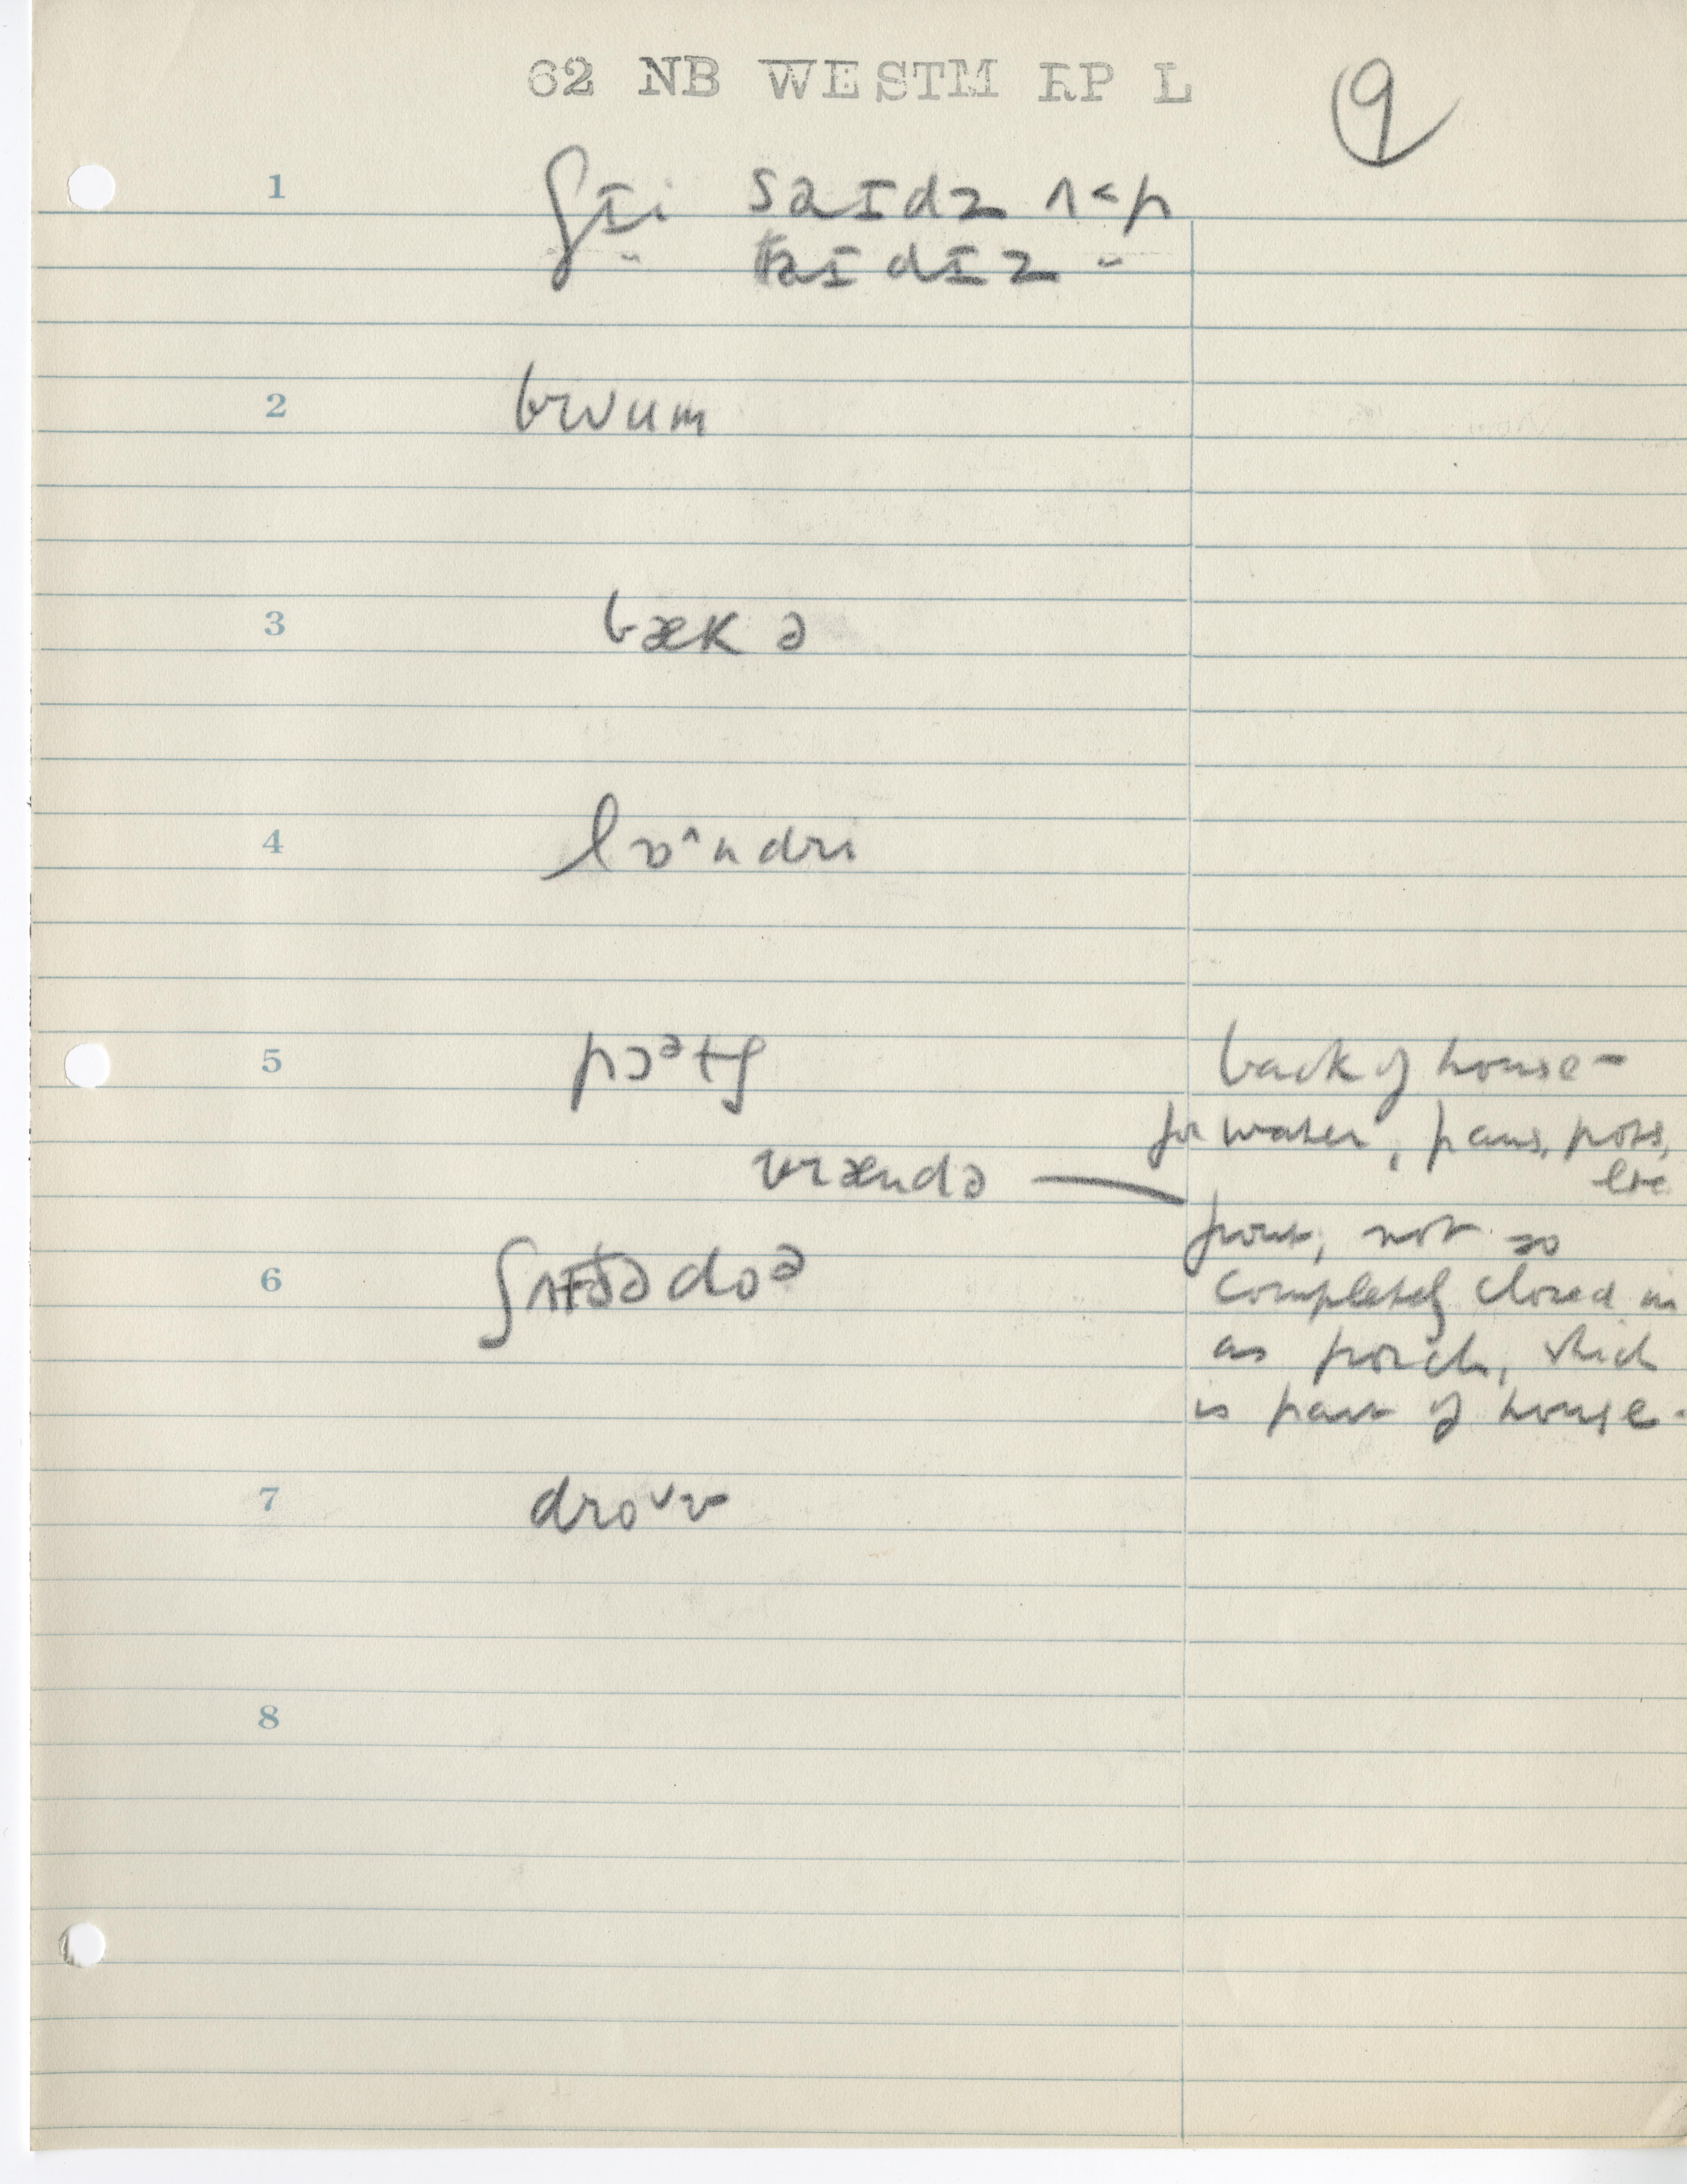 62 NB WESTM RP L
9
1 ʃɪi saɪdz ʌ<p
" taɪdɪz "
2 brʊum
3 bæk ə
4 lɒ^ndri
5 pɔᵊtʃ back of house –
for water, pans, pots,
vrændə — etc
front, not so
6 ʃʌtðədoᵊ completely closed in
as porch, which
is part of house.
7 dro˅v
8